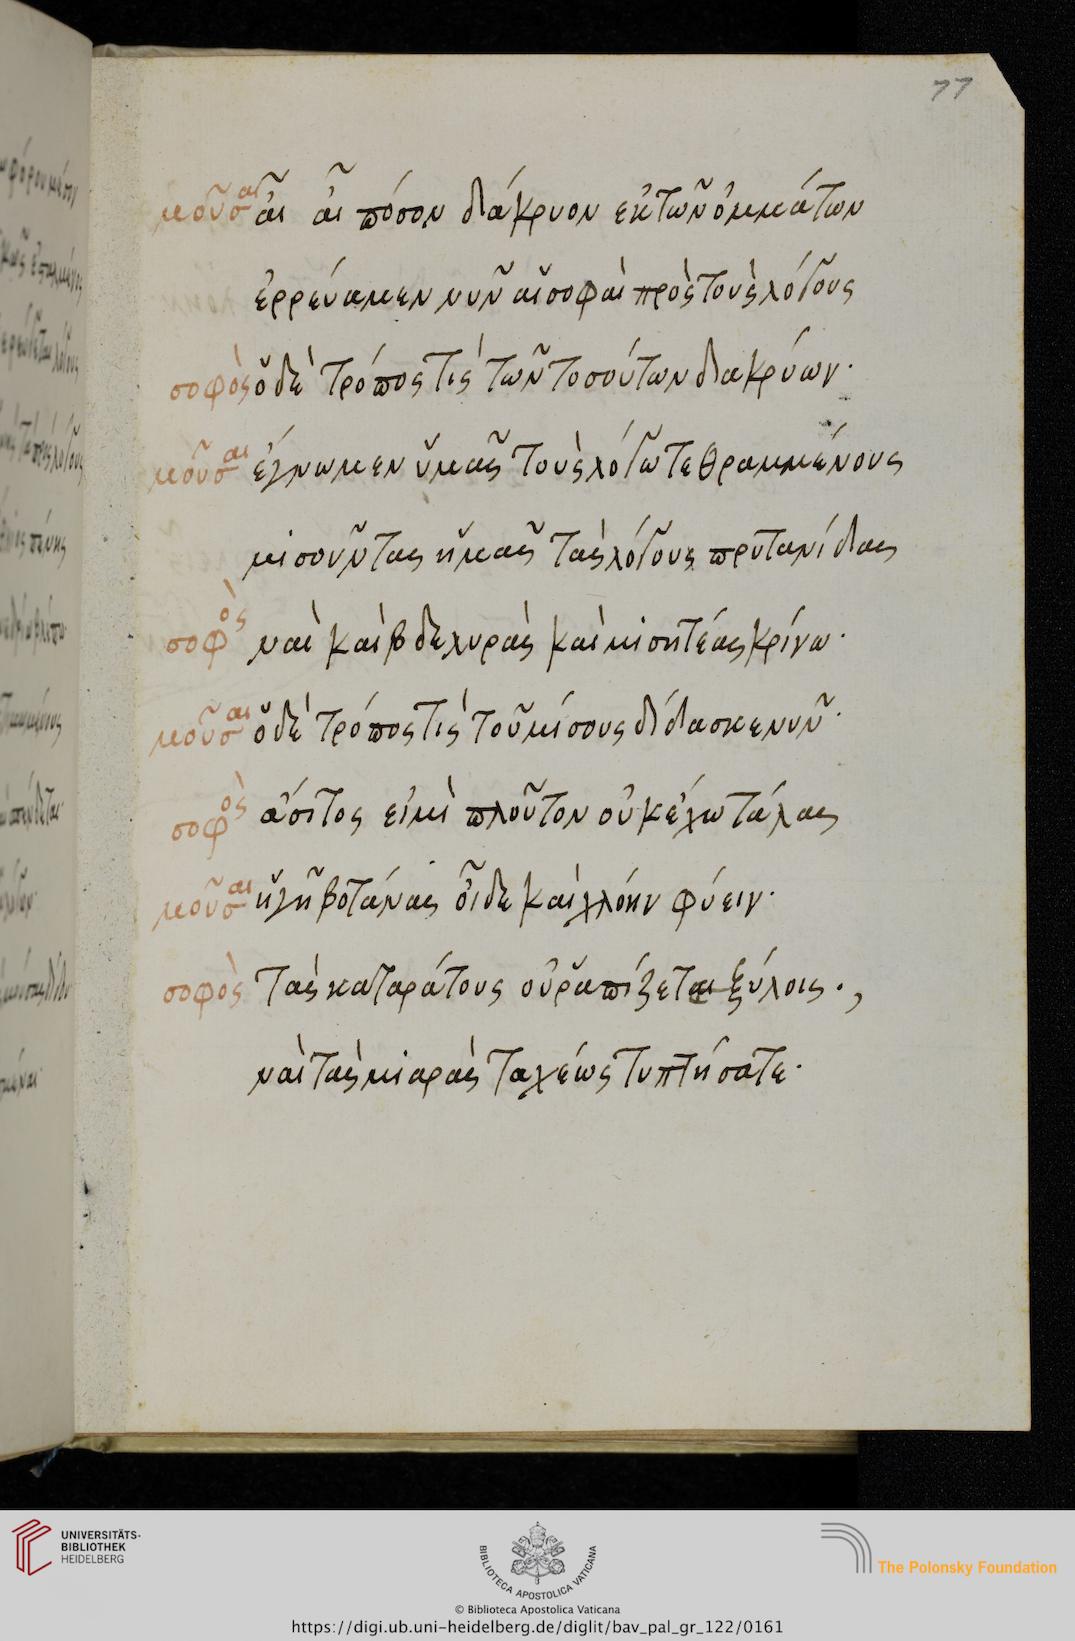 77
μοῦσαι αἶ αἶ πόσον δάκρυον ἐκ τῶν ὀμμάτων
ἐρρεύαμεν νῦν αἱ σοφαὶ πρὸς τοὺς λόγους
σοφὸς ὁ δὲ τρόπος τίς τῶν τοσούτων δακρύων·
μοῦσαι ἔγνωμεν ὑμᾶς τοὺς λόγω τεθραμμένους
μισοῦντας ἡμᾶς τὰς λόγους πρυτανίδας
σοφὸς ναὶ καὶ βδελυρὰς καὶ μισητέας κρίνω·
μοῦσαι ὁ δὲ τρόπος τίς τοῦ μίσους δίδασκε νῦν·
σοφὸς ἄσιτος εἰμὶ πλοῦτον οὐκ ἔχω τάλας
μοῦσαι ἡ γῆ βοτάνας οἶδε καὶ χλόην φύειν·
σοφὸς τὰς καταράτους οὐ ῥαπίζεται ξύλοις·,
ναὶ τὰς μιαρὰς ταχέως τυπτήσατε·
UNIVERSITÄTS-
BIBLIOTHEK
HEIDELBERG
BIBLIOTECA APOSTOLICA VATICANA
The Polonsky Foundation
© Biblioteca Apostolica Vaticana
https://digi.ub.uni-heidelberg.de/diglit/bav_pal_gr_122/0161